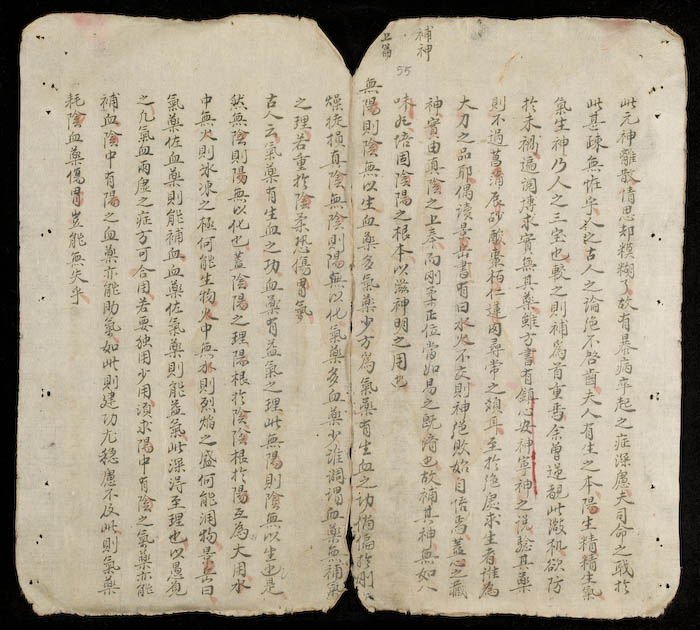 補神
上篇
55
此元神離散情思却模糊了故有暴病卒起之症深慮夫司命之戰於
此甚疎無惟乎 之古人之論絶不啓齒夫人有生之本陽生精精生氣
氣生神乃人之三宝也較之則補為首重焉余曽逆覩此敝机欲防
於未禍遍調博求實無其藥雖方書有鎮心安神寧神之説驗其藥
則不過菖蒲辰砂酸棗栢仁蓮肉尋常之類耳至於絶處求生者誰為
大刀之品耶偶讀景岳書有曰水火不交則神絶敗始自悟焉蓋心之藏
神實由真陰之上奉而剛柔正位當如易之既濟也故補其神無如人
味 悟固陰陽之根本以滋神明之用也
無陽則陰無以生血藥多氣藥少方為氣藥有生血之功倘偏於剛
燥從損真陰無陰則陽無以化氣藥多血藥少誰調謂血藥無補氣
之理若重於陰柔恐傷胃氣
古人云氣藥有生血之功血藥有益氣之理此無陽則陰無以生也是
然無陰則陽無以化也蓋陰陽之理陽根於陰陰根於陽互為大用水
中無火則氷凍之極何能生物火中無水則烈焰之盛何能潤物景岳曰
氣藥佐血藥則能補血血藥佐氣藥則能益氣此深得至理也以愚見
之凡氣血兩虛之症方可合用若要独用少用須求陽中有陰之氣藥亦能
補血陰中有陽之血藥亦能助氣如此則建功尤穩慮不及此則氣藥
耗陰血藥傷胃豈能無失乎